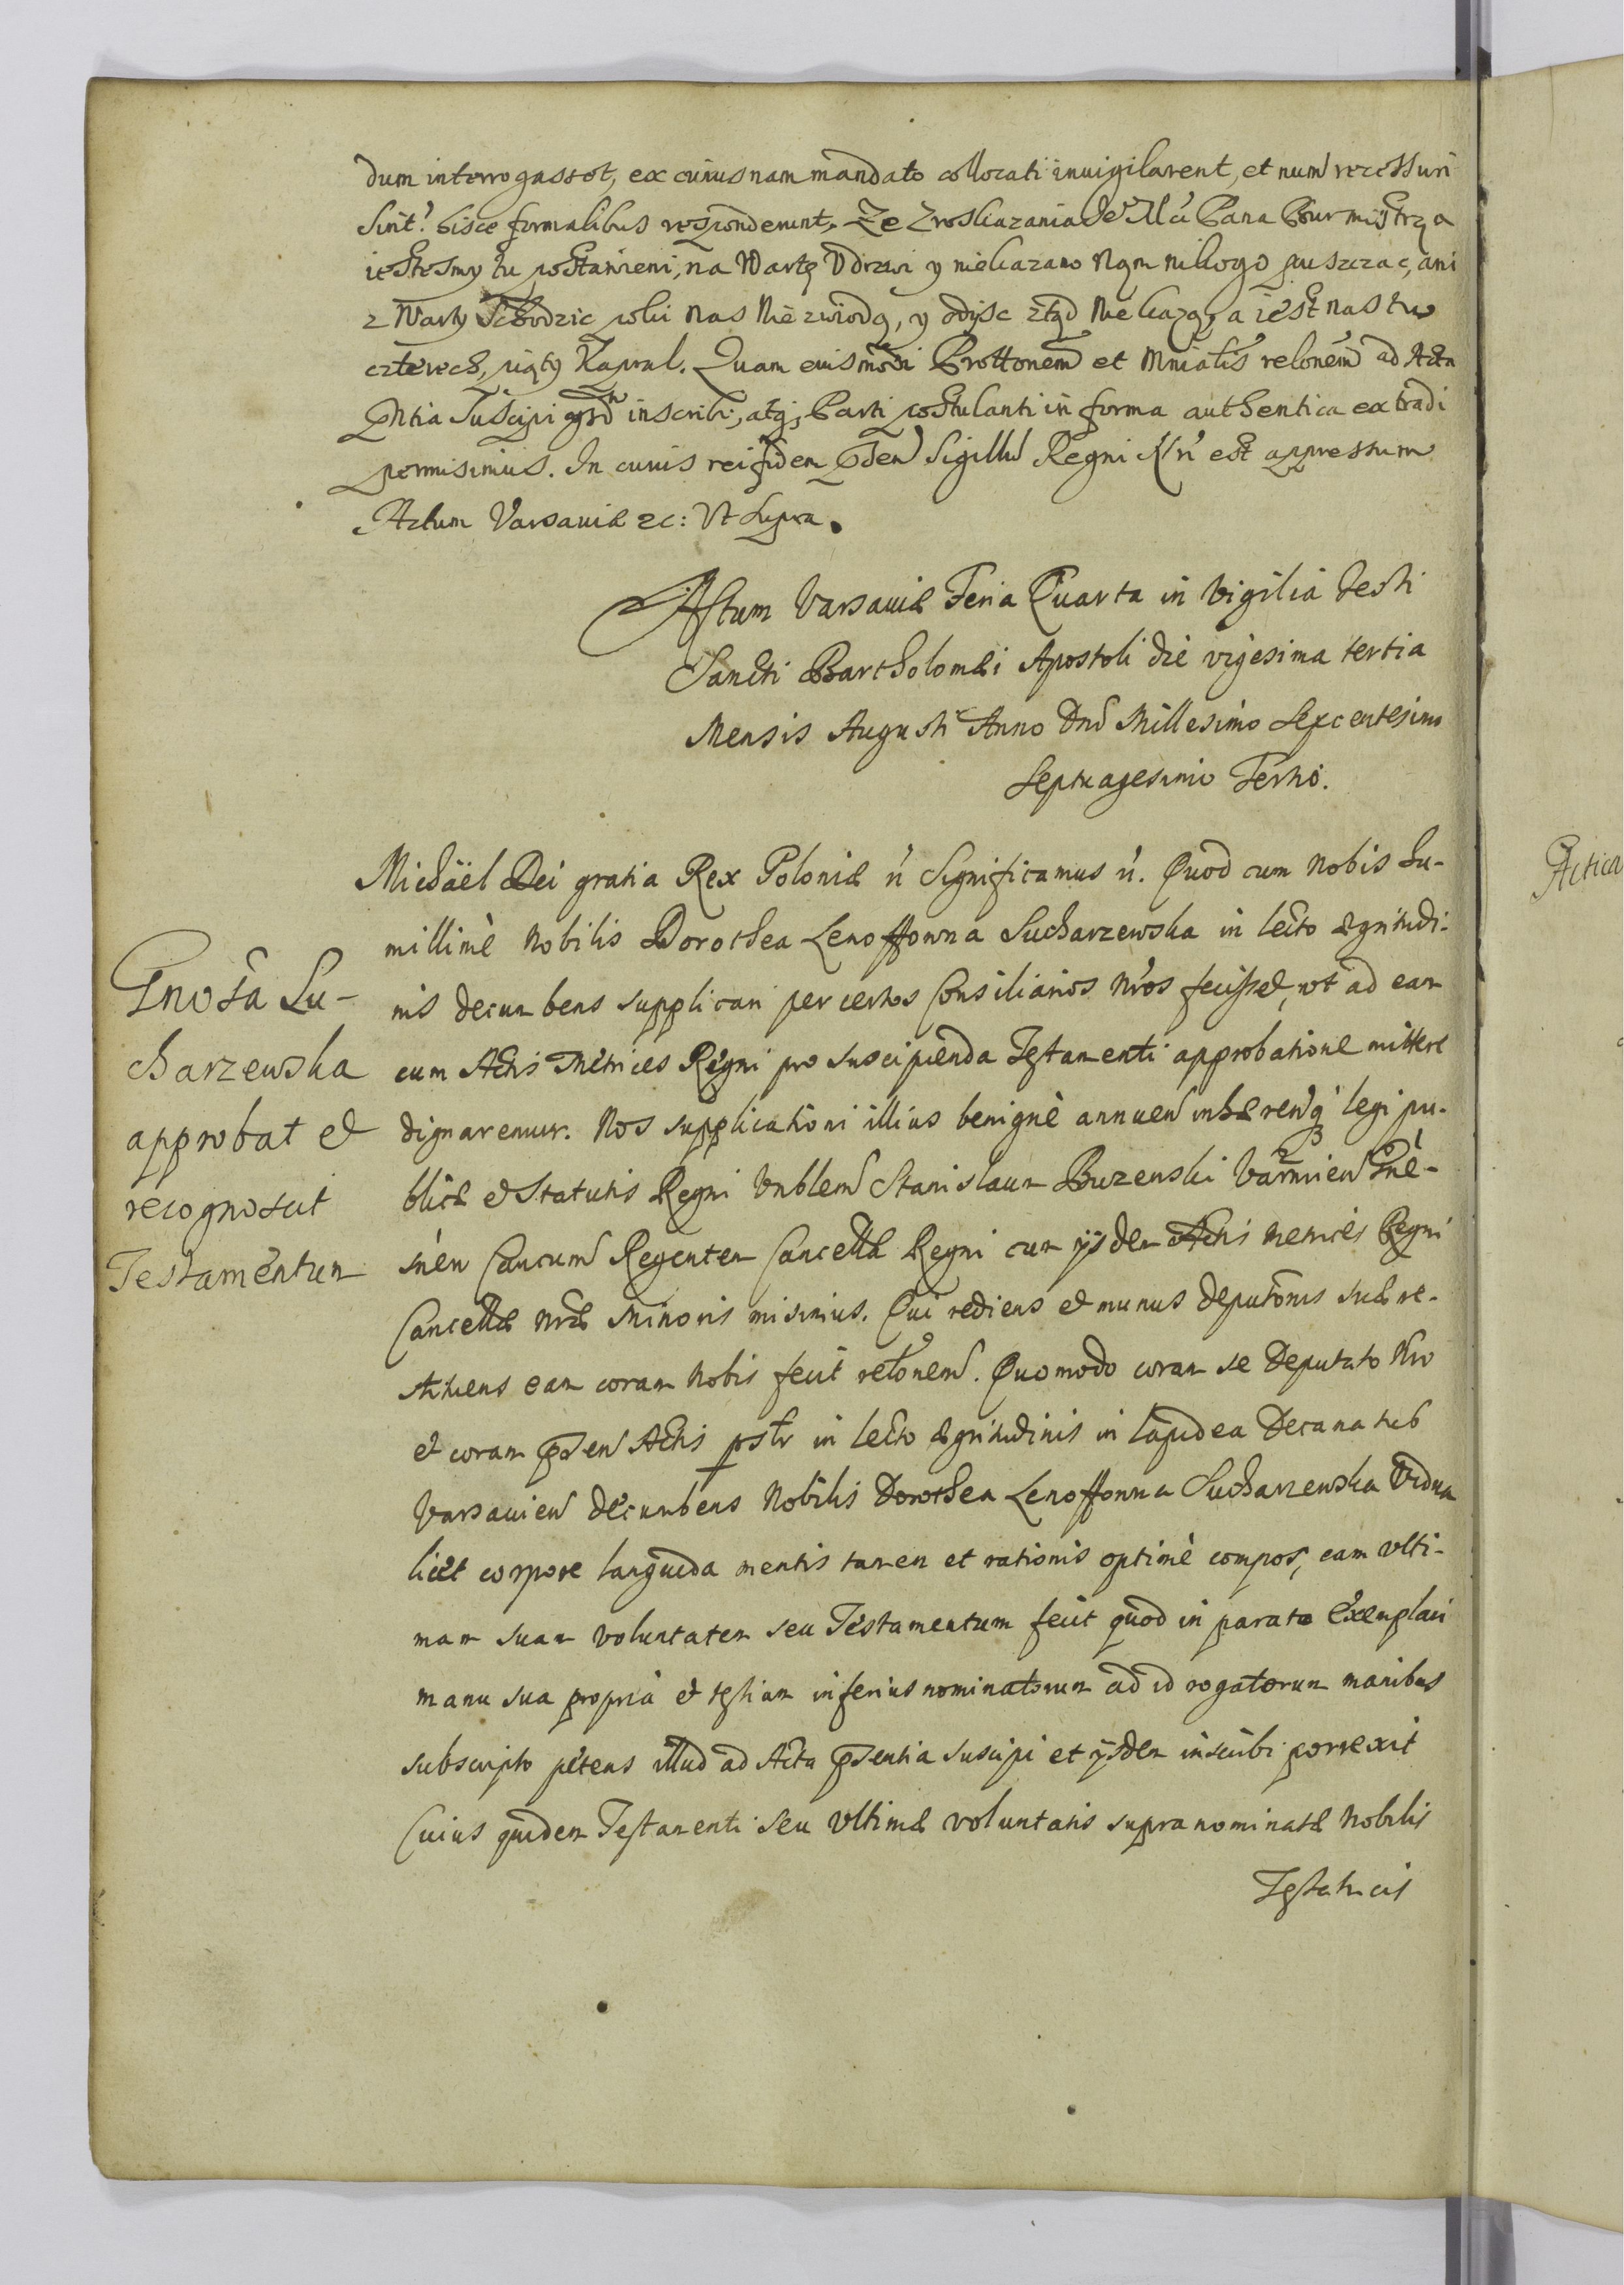 dum interrogasset, ex cuiusnam mandato collocati invigilarent, et num recessuri
sint? hisce formalibus responderunt. Ze z roskazania Je Mći Pana Burmistrza
iestesmy tu postawieni, na Wartę u drzwi y niekazano Nąm nikogo puszczac, ani
z Warty schodzic poki nas nie zwiodą, y odysc ztąd nie każą, a iest nas tu
czterech, piąty Kapral. Quam eiusmodi Prottonem et Mnialis relonem ad Acta
pntia suscipi inscribi, atq; Parti postulanti in forma authentica extradi
permisimus. In cuius rei fidem psen Sigillu Regni Nri est appressum
Actum Varsaviæ 2c: Ut supra.
Actum Varsaviæ Feria Quarta in Vigilia Festi
Sancti Bartholomæi Apostoli die vigesima tertia
Mensis Augusti Anno Dni Millesimo Sexcentesimo
Septuagesimo Tertio.
Michäel Dei gratia Rex Poloniæ ń Significamus ń. Quod cum Nobis hu-
millimè Nobilis Dorothea Lenoffowna Sucharzewska in lecto ægritudi-
nis decumbens supplicari per certos Consiliarios Nros fecisset, ut ad eam
cum Actis Metrices Regni pro suscipienda Testamenti approbatione mittere
dignaremur. Nos supplicationi illius benignè annuen inhæren'q' legi pu-
blicæ et Statutis Regni Vnblem Stanislaum Buzenski Varmien Gne-
snen Cancum Regentem Cancellæ Regni cum ijsdem Actis Metrices Regni
Cancellæ Nræ Minoris misimus. Qui rediens et munus deputonis suæ re-
stituens eam coram Nobis fecit relonem. Quomodo coram se Deputato Nro
et coram psen Actis pstr in lecto ægritudinis in lapidea Decanatus
Varsavien decumbens Nobilis Dorothea Lenoffowna Sucharzewska Vidua
licet corpore languida mentis tamen et rationis optimè compos, eam ulti-
mam suam voluntatem seu Testamentum fecit quod in parato exemplari
manu sua propria et testium inferius nominatorum ad id rogatorum manibus
subscripto petens illud ad Acta psentia suscipi et ijsdem inscribi porrexit
Cuius quidem Testamenti seu ultimæ voluntatis supra nominatæ Nobilis
Testatricis
Gnosa Su-
charzewska
approbat et
recognoscit
Testamentum